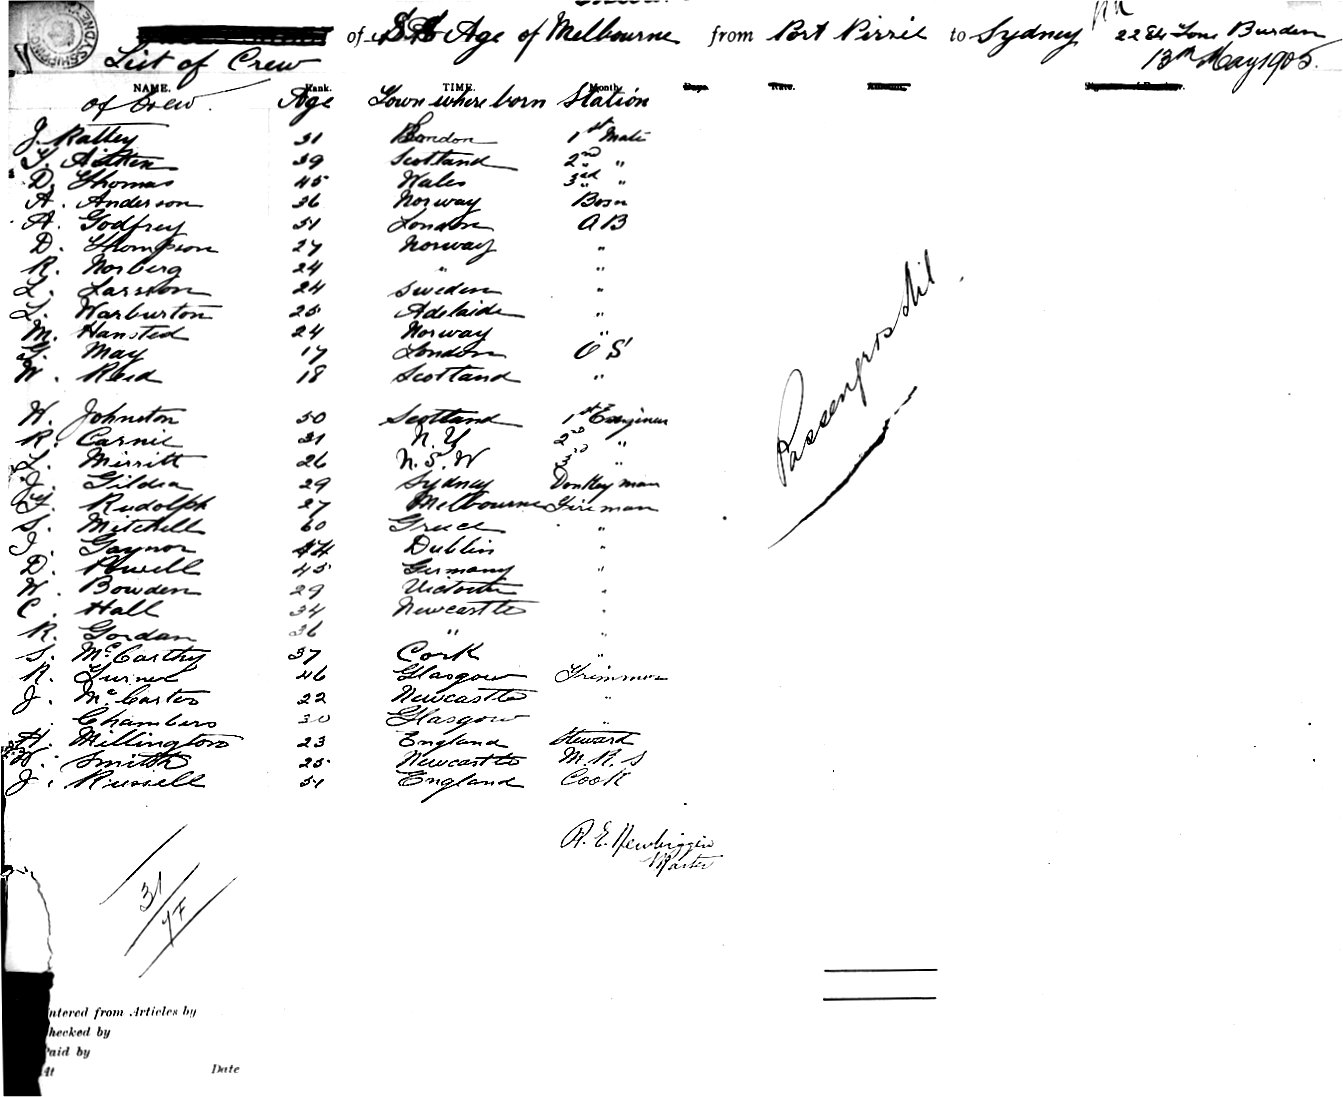 of S.S. Age of Melbourne from Port Pirrie to Sydney 2284 Tons Burden
List of Crew 13th May 1905.
NAME. Rank. TIME. Month.
of Crew. Age Town where born Station
J. Rattey 31 London 1st Mate
T. Aitken 39 Scotland 2nd "
D. Thomas 45 Wales 3rd "
A. Anderson 36 Norway Bosn
A. Godfrey 51 London AB
D. Thompson 27 Norway "
R. Norberg 24 " "
L. Larsson 24 Sweden "
L. Warburton 25 Adelaide "
M. Hansted 24 Norway "
May 17 London O S
W. Reid 18 Scotland "
W. Johnston 50 Scotland 1st Engineer
R. Carnie 31 N. Z 2nd "
L. Merritt 26 N.S.W 3rd "
J. Gildea 29 Sydney Donkeyman
F. Rudolph 27 Melbourne Fireman
S. Mitchell 60 Greece "
J. Gaynor 44 Dublin "
D. Powell 45 Germany "
W. Bowden 29 Victoria "
C. Hall 34 Newcastle "
R. Gordan 36 " "
S. McCarthy 37 Cork "
R. Turner 46 Glasgow Trimmer
J. McCarter 22 Newcastle "
Chambers 30 Glasgow "
H. Millington 23 England Steward
W. Smith 25 Newcastle M.R.S
J. Russell 51 England Cook
Passengers Nil
R. E. Newbiggin
Master
31
ntered from Articles by
hecked by
Paid by
At Date